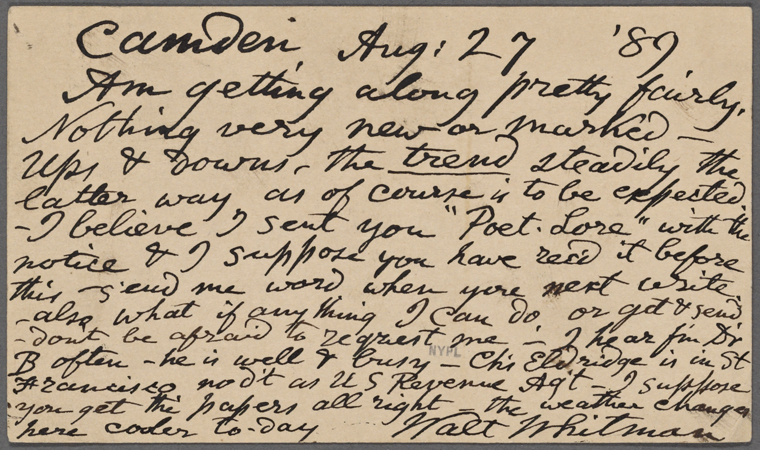 Camden Aug: 27 '89
Am getting along pretty fairly.
Nothing very new or marked –
Ups & downs, – the trend steadily the
latter way as of course is to be expected
– I believe I sent you "Poet-Lore" with the
notice & I suppose you have rec'd it before
this – send me word when you next write
– also what if any thing I can do or get & send
– don't be afraid to request me – I hear f'm Dr
B often – he is well & busy – Ch's Eldridge is in St
Francisco no d't as U S Revenue Ag't – I suppose
you get the papers all right – the weather changes
here cooler to-day Walt Whitman
NYPL